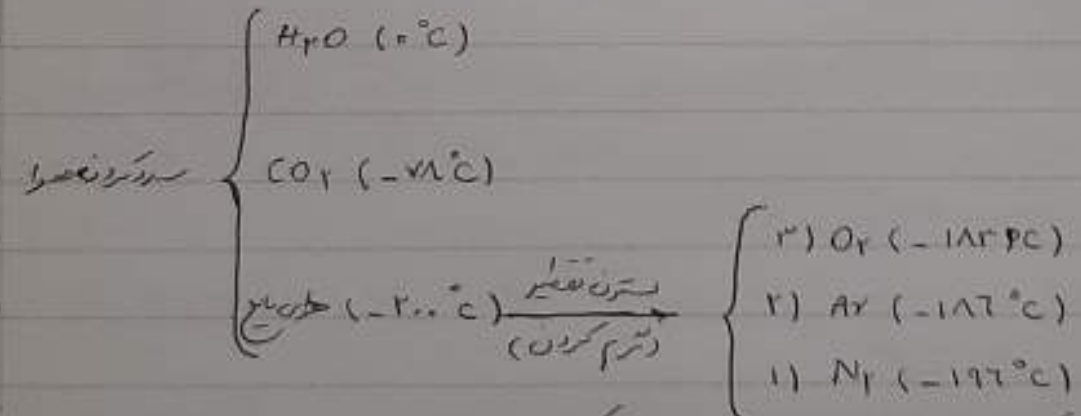 H۲O (۰°C)
سرد کردن هوا
CO۲ (-۷۸°C)
هوای مایع (-۲۰۰°C)
ستون تقطیر
(گرم کردن)
۳) O۲ (-۱۸۳°C)
۲) Ar (-۱۸۶°C)
۱) N۲ (-۱۹۶°C)